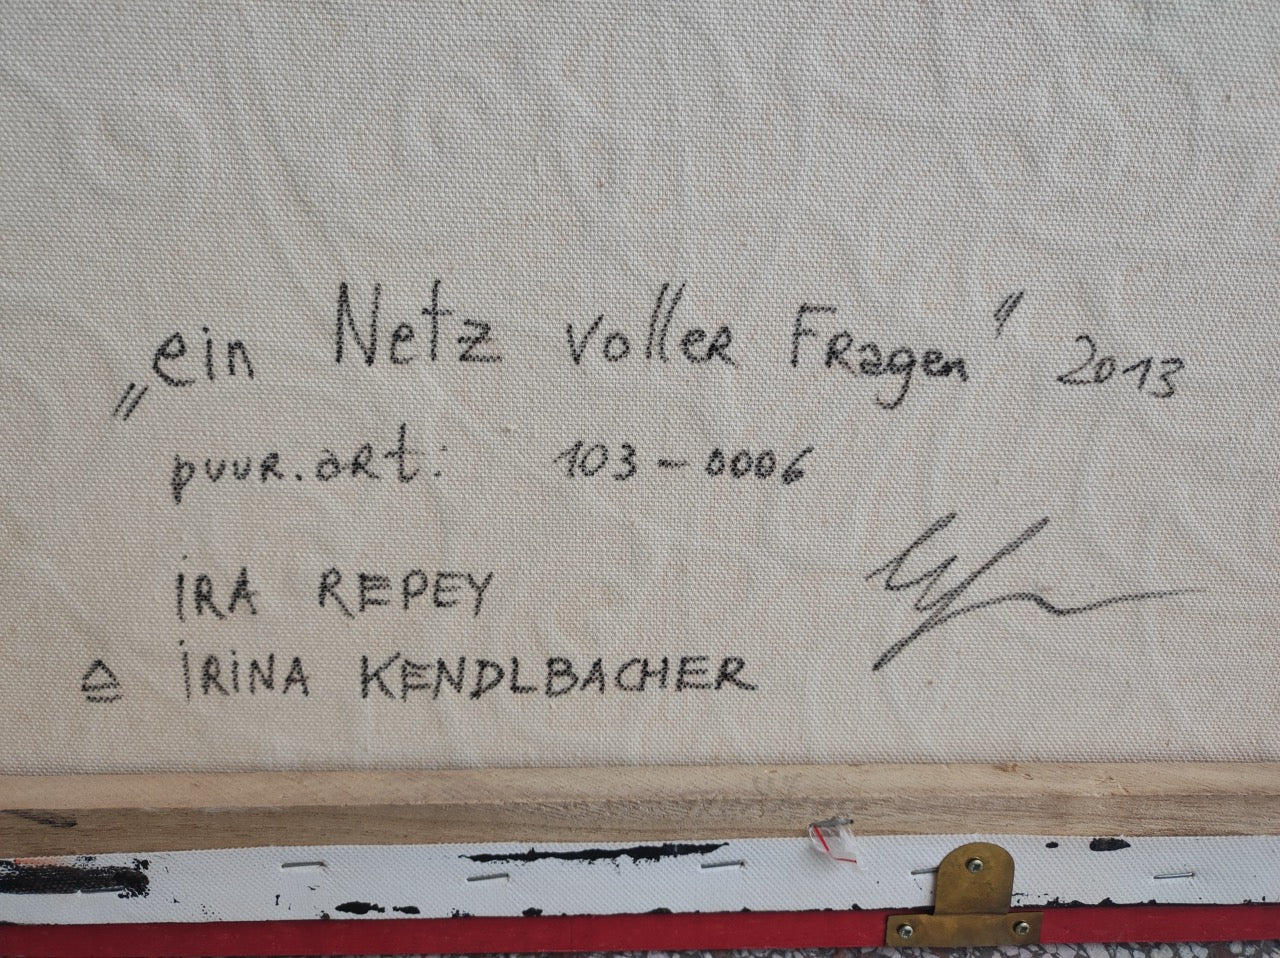 „ein Netz voller Fragen" 2013
puur.art: 103-0006
iRA REPEY
≙ iRiNA KENDLBACHER